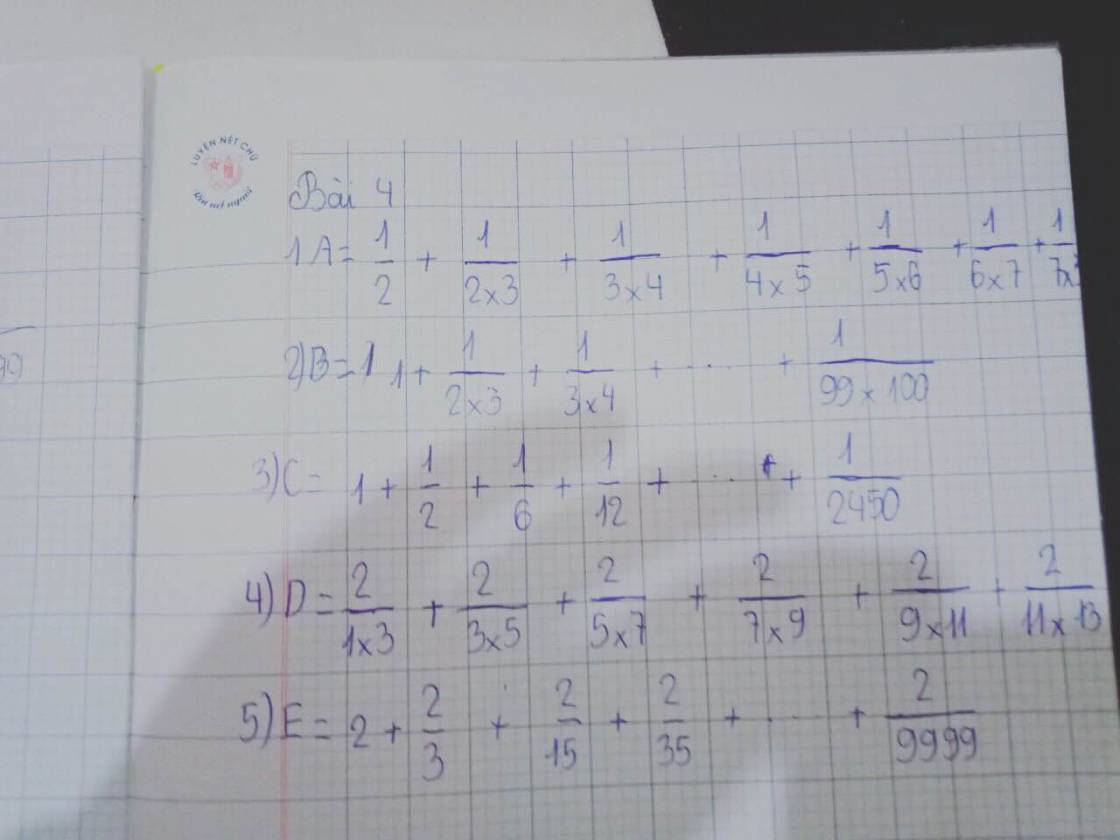 LUYỆN NÉT CHỮ
Rèn nết người
Bài 4
1 A = 1/2 + 1/2×3 + 1/3×4 + 1/4×5 + 1/5×6 + 1/6×7 + 1/7×
2) B = 1 1 + 1/2×3 + 1/3×4 + ... + 1/99×100
3) C = 1 + 1/2 + 1/6 + 1/12 + ... + 1/2450
4) D = 2/1×3 + 2/3×5 + 2/5×7 + 2/7×9 + 2/9×11 + 2/11×13
5) E = 2 + 2/3 + 2/15 + 2/35 + ... + 2/9999